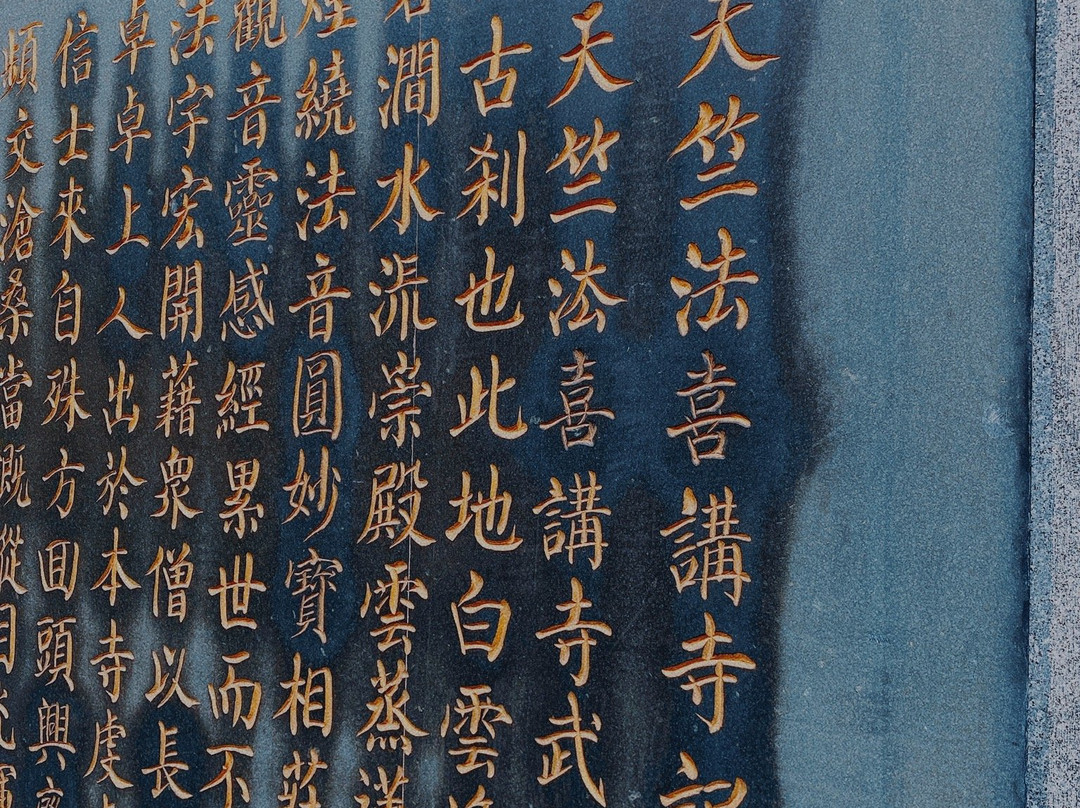 天竺法喜講寺記
天竺法喜講寺武
古刹也此地白雲
澗水流崇殿雲蒸
煙繞法音圓妙寶相莊
觀音靈感經累世而不
法宇宏開藉衆僧以長
卓卓上人出於本寺虔
信士來自殊方囬頭興
頻交滄桑當慨縱目